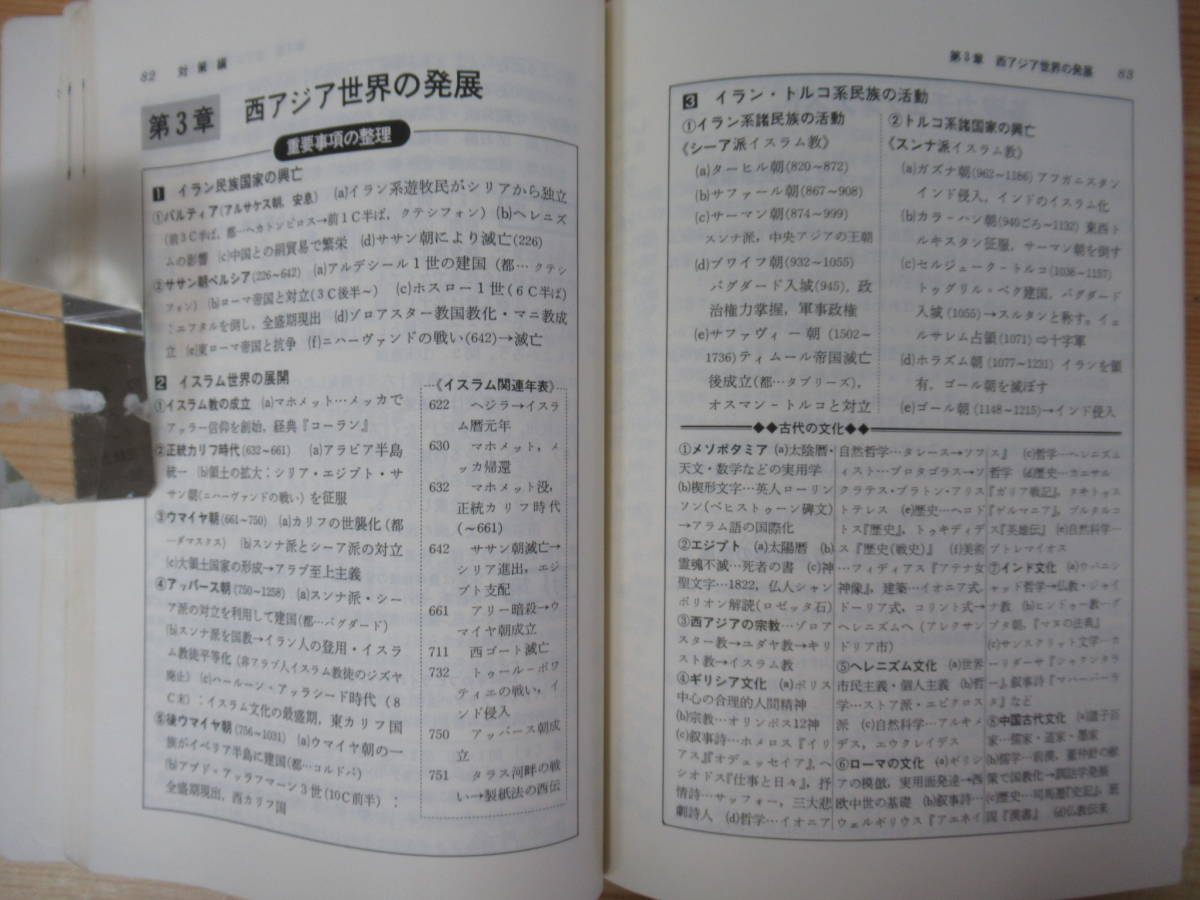 82 対策編
第3章 西アジア世界の発展
重要事項の整理
1 イラン民族国家の興亡
①パルティア(アルサケス朝, 安息) (a)イラン系遊牧民がシリアから独立
(前3C半ば, 都…ヘカトンピロス→前1C半ば, クテシフォン) (b)ヘレニズ
ムの影響 (c)中国との絹貿易で繁栄 (d)ササン朝により滅亡(226)
②ササン朝ペルシア(226~642) (a)アルデシール1世の建国(都…クテシ
フォン) (b)ローマ帝国と対立(3C後半~) (c)ホスロー1世(6C半ば)
:エフタルを倒し, 全盛期現出 (d)ゾロアスター教国教化・マニ教成
立 (e)東ローマ帝国と抗争 (f)ニハーヴァンドの戦い(642)→滅亡
2 イスラム世界の展開
①イスラム教の成立 (a)マホメット…メッカで
アッラー信仰を創始, 経典『コーラン』
②正統カリフ時代(632~661) (a)アラビア半島
統一 (b)領土の拡大:シリア・エジプト・サ
サン朝(ニハーヴァンドの戦い)を征服
③ウマイヤ朝(661~750) (a)カリフの世襲化(都
…ダマスクス) (b)スンナ派とシーア派の対立
(c)大領土国家の形成→アラブ至上主義
④アッバース朝(750~1258) (a)スンナ派・シー
ア派の対立を利用して建国(都…バグダード)
(b)スンナ派を国教→イラン人の登用・イスラ
ム教徒平等化(非アラブ人イスラム教徒のジズヤ
廃止) (c)ハールーン・アッラシード時代(8
C末):イスラム文化の最盛期, 東カリフ国
⑤後ウマイヤ朝(756~1031) (a)ウマイヤ朝の一
族がイベリア半島に建国(都…コルドバ)
(b)アブド・アッラフマーン3世(10C前半):
全盛期現出, 西カリフ国
《イスラム関連年表》
622 ヘジラ→イスラ
ム暦元年
630 マホメット, メ
ッカ帰還
632 マホメット没,
正統カリフ時代
(~661)
642 ササン朝滅亡→
シリア進出, エジ
プト支配
661 アリー暗殺→ウ
マイヤ朝成立
711 西ゴート滅亡
732 トゥール-ポワ
ティエの戦い, イ
ンド侵入
750 アッバース朝成
立
751 タラス河畔の戦
い→製紙法の西伝
第3章 西アジア世界の発展 83
3 イラン・トルコ系民族の活動
①イラン系諸民族の活動
《シーア派イスラム教》
(a)ターヒル朝(820~872)
(b)サファール朝(867~908)
(c)サーマン朝(874~999)
スンナ派, 中央アジアの王朝
(d)ブワイフ朝(932~1055)
バグダード入城(945), 政
治権力掌握, 軍事政権
(e)サファヴィー朝(1502~
1736)ティムール帝国滅亡
後成立(都…タブリーズ),
オスマン-トルコと対立
②トルコ系諸国家の興亡
《スンナ派イスラム教》
(a)ガズナ朝(962~1186) アフガニスタン
インド侵入, インドのイスラム化
(b)カラ-ハン朝(940ごろ~1132) 東西ト
ルキスタン征服, サーマン朝を倒す
(c)セルジューク-トルコ(1038~1157)
トゥグリル・ベク建国, バグダード
入城(1055)→スルタンと称す。イェ
ルサレム占領(1071)⇨十字軍
(d)ホラズム朝(1077~1231) イランを領
有, ゴール朝を滅ぼす
(e)ゴール朝(1148~1215)→インド侵入
◆◆古代の文化◆◆
①メソポタミア (a)太陰暦・
天文・数学などの実用学
(b)楔形文字…英人ローリン
ソン(ベヒストゥーン碑文)
→アラム語の国際化
②エジプト (a)太陽暦 (b)
霊魂不滅…死者の書 (c)神
聖文字…1822, 仏人シャン
ポリオン解読(ロゼッタ石)
③西アジアの宗教…ゾロア
スター教→ユダヤ教→キリ
スト教→イスラム教
④ギリシア文化 (a)ポリス
中心の合理的人間精神
(b)宗教…オリンポス12神
(c)叙事詩…ホメロス『イリ
アス』『オデュッセイア』, ヘ
シオドス『仕事と日々』, 抒
情詩…サッフォー, 三大悲
劇詩人 (d)哲学…イオニア
自然哲学…タレース→ソフ
ィスト…プロタゴラス→ソ
クラテス・プラトン・アリス
トテレス (e)歴史…ヘロド
トス『歴史』, トゥキディデ
ス『歴史(戦史)』 (f)美術
…フィディアス『アテナ女
神像』, 建築…イオニア式,
ドーリア式, コリント式→
ヘレニズムへ(アレクサン
ドリア市)
⑤ヘレニズム文化 (a)世界
市民主義・個人主義 (b)哲
学…ストア派・エピクロス
派 (c)自然科学…アルキメ
デス, エウクレイデス
⑥ローマの文化 (a)ギリシ
アの模倣, 実用面発達→西
欧中世の基礎 (b)叙事詩…
ウェルギリウス『アエネイ
ス』 (c)哲学…ヘレニズム
哲学 (d)歴史…カエサル
『ガリア戦記』, タキトゥス
『ゲルマニア』, プルタルコ
ス『英雄伝』 (e)自然科学…
プトレマイオス
⑦インド文化 (a)ウパニシ
ャッド哲学→仏教・ジャイ
ナ教 (b)ヒンドゥー教…グ
プタ朝, 『マヌの法典』
(c)サンスクリット文学…カ
ーリダーサ『シャクンタラ
ー』, 叙事詩『マハーバーラ
タ』など
⑧中国古代文化 (a)諸子百
家…儒家・道家・墨家
(b)儒学…前漢, 董仲舒の献
策で国教化→訓詁学発展
(c)歴史…司馬遷『史記』, 班
固『漢書』 (d)仏教伝来